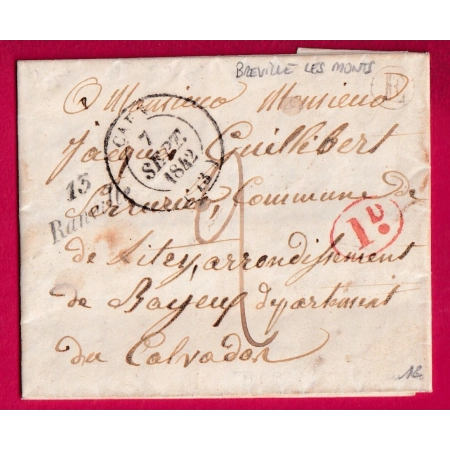 BREVILLE LES MONTS
A Monsieur Monsieur
Jacques Guillebert
CAEN
7
SEPT.
1842
(13)
13
Ranville
2
1D
Serrurier, Commune de
de Litry, arrondissement
de Bayeux département
du Calvados